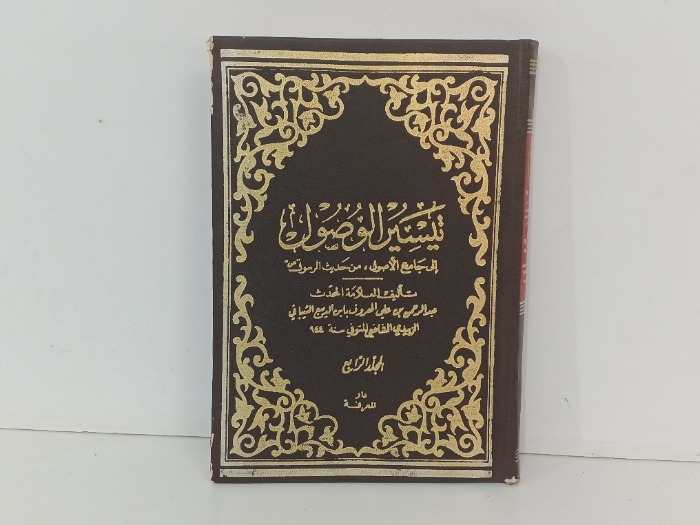 تيسير الوصول
إلى جامع الأصول، من حديث الرسول ص
تأليف العلامة المحدث
عبد الرحمن بن علي المعروف بابن الديبع الشيباني
الزبيدي الشافعي المتوفي سنة ٩٤٤
المجلد الرابع
دار
المعرفة